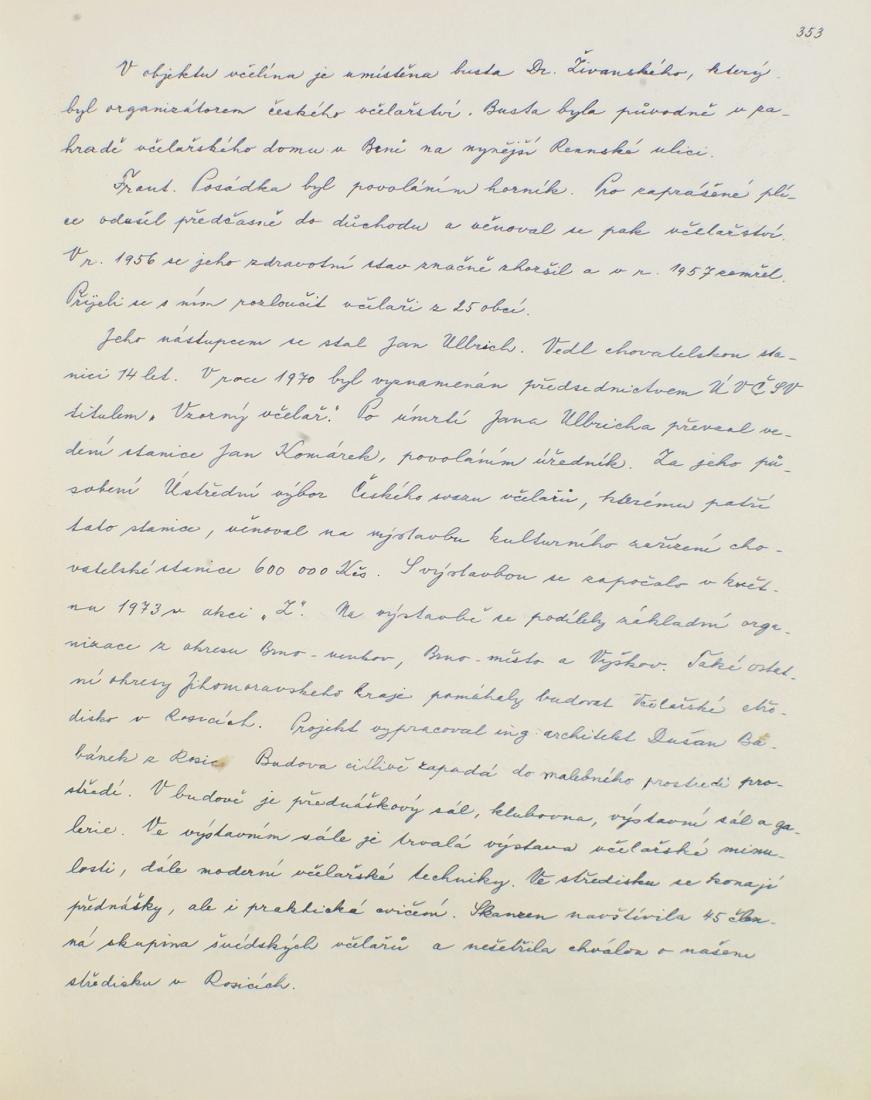 353
V objektu včelína je umístěna busta Dr. Živanského, který
byl organizátorem českého včelařství. Busta byla původně v za-
hradě včelařského domu v Brně na nynější Rennské ulici.
Frant. Posádka byl povoláním horník. Pro zaprášené plí-
ce odešel předčasně do důchodu a věnoval se pak včelařství.
V r. 1956 se jeho zdravotní stav značně zhoršil a v r. 1957 zemřel.
Přijeli se s ním rozloučit včelaři z 25 obcí.
Jeho nástupcem se stal Jan Ullrich. Vedl chovatelskou sta-
nici 14 let. V roce 1970 byl vyznamenán předsednictvem ÚVČSV
titulem „Vzorný včelař." Po úmrtí Jana Ullricha převzal ve-
dení stanice Jan Komárek, povoláním úředník. Za jeho pů-
sobení Ústřední výbor Českého svazu včelařů, kterému patří
tato stanice, věnoval na výstavbu kulturního zařízení cho-
vatelské stanice 600 000 Kčs. S výstavbou se započalo v květ-
nu 1973 v akci „Z". Na výstavbě se podílely základní orga-
nizace z okresu Brno-venkov, Brno-město a Vyškov. Také ostat-
ní okresy Jihomoravského kraje pomáhaly budovat včelařské stře-
disko v Rosicích. Projekt vypracoval ing. architekt Dušan Ba-
bánek z Rosic Budova citlivě zapadá do malebného prostředí pro-
středí. V budově je přednáškový sál, klubovna, výstavní sál a ga-
lerie. Ve výstavním sále je trvalá výstava včelařské minu-
losti, dále moderní včelařské techniky. Ve středisku se konají
přednášky, ale i praktická cvičení. Skanzen navštívila 45 člen-
ná skupina švédských včelařů a nešetřila chválou o našem
středisku v Rosicích.